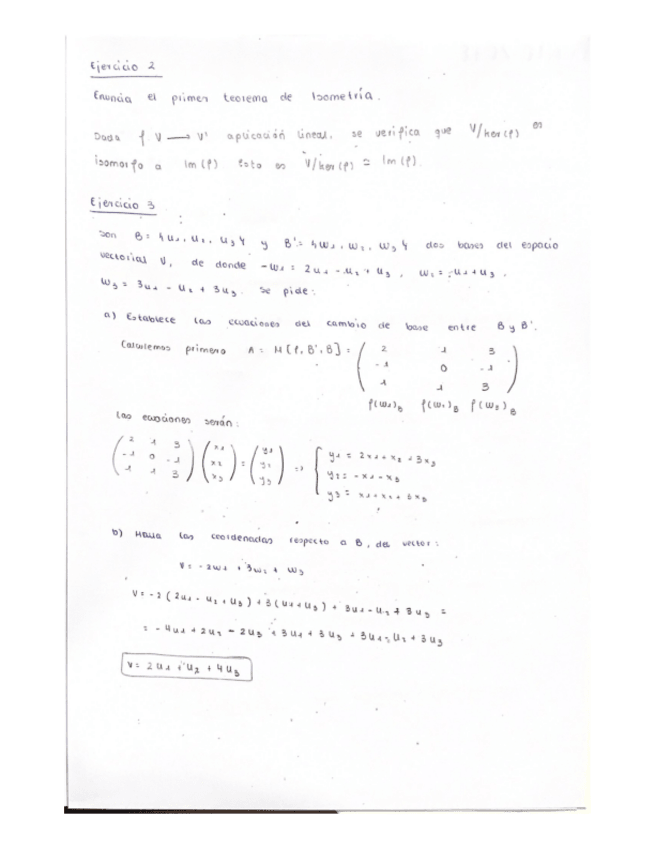 Ejercicio 2
Enuncia el primer teorema de Isometría.
Dada f: V → V' aplicación lineal, se verifica que V/ker(f) es
isomorfo a Im(f) esto es V/ker(f) ≅ Im(f).
Ejercicio 3
Son B = {u1, u2, u3} y B' = {w1, w2, w3} dos bases del espacio
vectorial V, de donde -w1 = 2u1 - u2 + u3, w2 = u1 + u3,
w3 = 3u1 - u2 + 3u3. Se pide:
a) Establece las ecuaciones del cambio de base entre B y B'.
Calculemos primero A = M[f, B', B] = ( 2 1 3
-1 0 -1
1 1 3 )
f(w1)B f(w2)B f(w3)B
Las ecuaciones serán:
( 2 1 3
-1 0 -1
1 1 3 ) ( x1 x2 x3 ) = ( y1 y2 y3 ) => { y1 = 2x1 + x2 + 3x3
y2 = -x1 - x3
y3 = x1 + x2 + 3x3
b) Halla las coordenadas respecto a B, del vector:
V = -2w1 + 3w2 + w3
V = -2(2u1 - u2 + u3) + 3(u1 + u3) + 3u1 - u2 + 3u3 =
= -4u1 + 2u2 - 2u3 + 3u1 + 3u3 + 3u1 - u2 + 3u3
V = 2u1 + u2 + 4u3